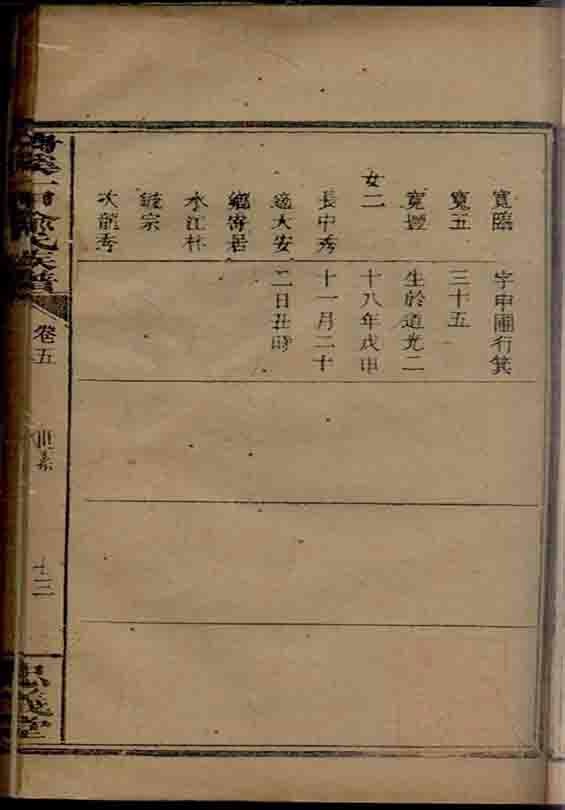 寬臨
寬五
寬豐
女二
長中秀
適大安
鄉寄居
水江林
毓宗
次龍秀
字中圃行箕
三十五
生於道光二
十八年戊申
十一月二十
二日丑時
俞氏族譜
卷五
世系
十三
義堂